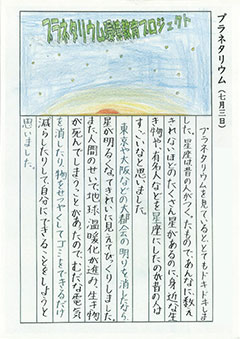 プラネタリウム（七月三日）
プラネタリウム環境教育プロジェクト
プラネタリウムを見ているととてもドキドキしま
した。星座は昔の人がつくったもので、あんなに数え
きれないほどのたくさん星があるのに、身近な生
き物や有名人などを星座にしたのが昔の人は
すごいなと思いました。
東京や大阪などの大都会の明りを消したなら
星が明るくなってきれいに見えてびっくりしました。
また人間のせいで、地球温暖化が進み、生き物
が死んでしまうことがあったので、むだな電気
を消したり、物をせつやくしてゴミをできるだけ
減らしたりして自分にできることをしようと
思いました。